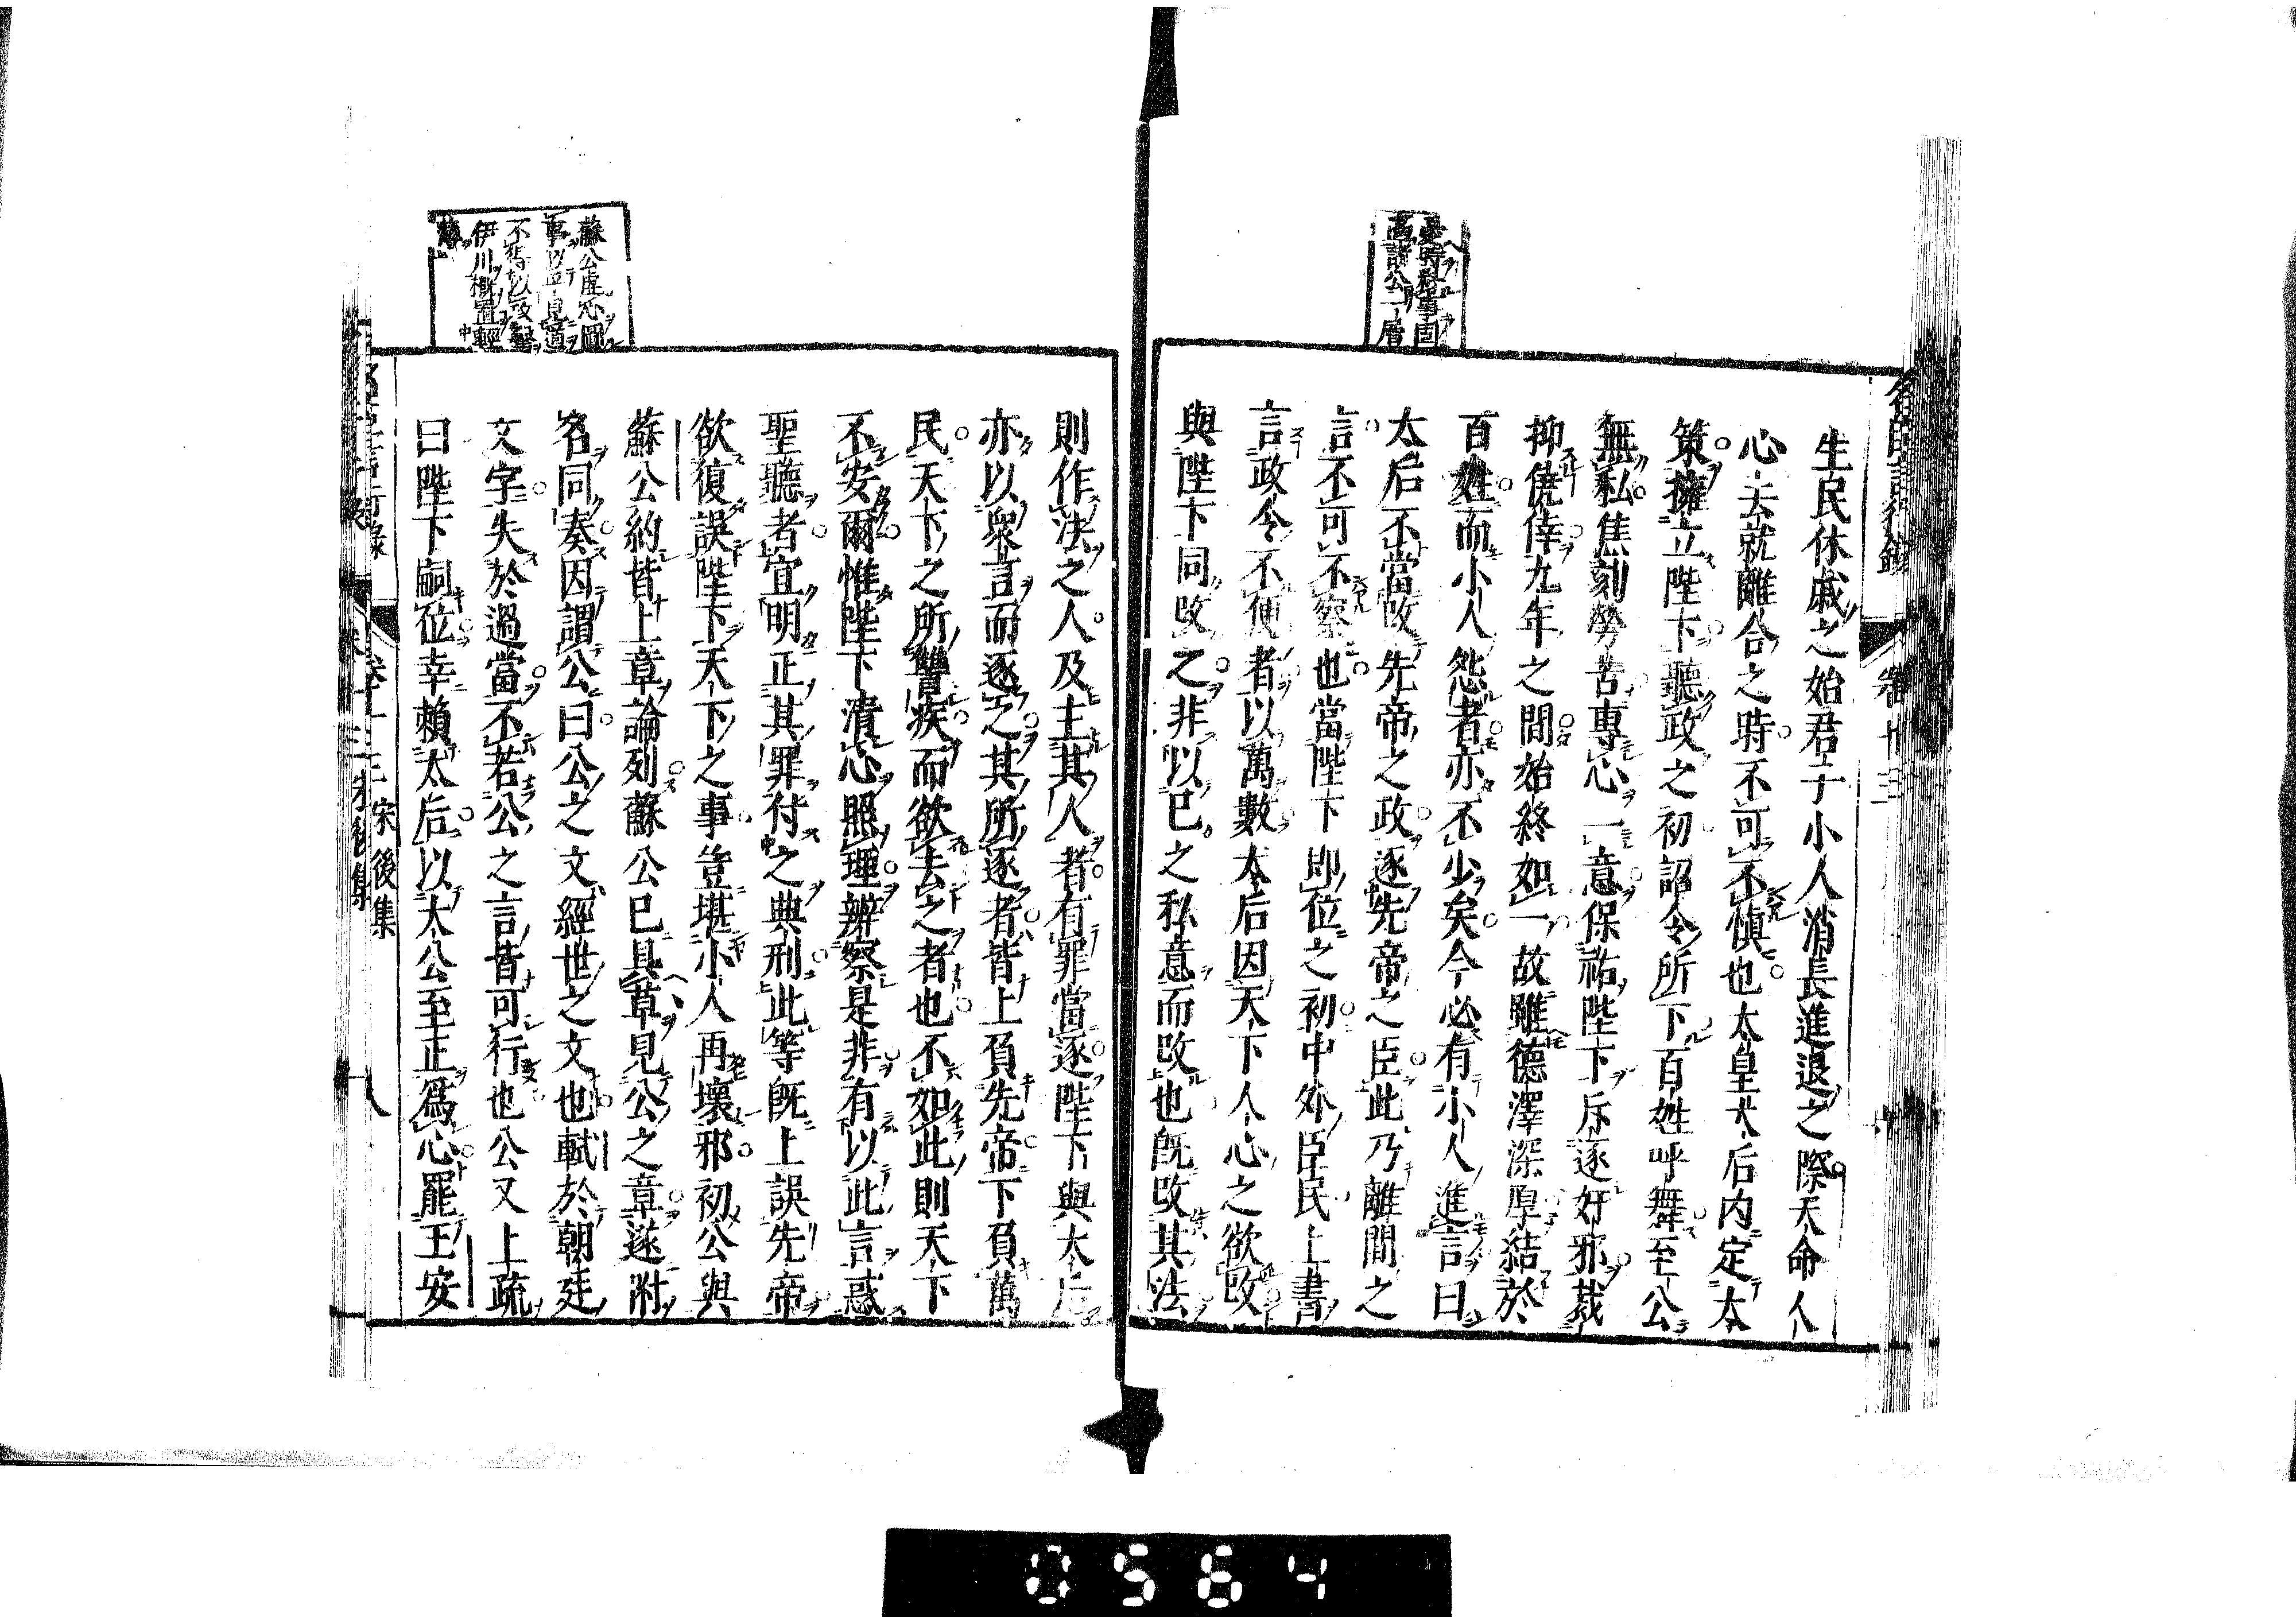 生民休戚之始君子小人消長進退之際天命人
心去就離合之時不可不慎也太皇太后内定大
策擁立陛下聽政之初詔令所下百姓呼舞至公
無私焦刻勞苦專心一意保祐陛下斥逐奸邪裁
抑僥倖九年之間始終如一故雖德澤深厚結於
百姓而小人怨者亦不少矣今必有小人進言曰
太后不當改先帝之政逐先帝之臣此乃離間之
言不可不察也當陛下即位之初中外臣民上書
言政令不便者以萬數太后因天下人心之欲改
與陛下同改之非以已之私意而改也既改其法
則作法之人及主其人者有罪當逐陛下與太后
亦以衆言而逐之其所逐者皆上負先帝下負萬
民天下之所讐疾而欲去之者也不如此則天下
不安爾惟陛下清心照理辨察是非有以此言惑
聖聽者宜明正其罪付之典刑此等既上誤先帝
欲復誤陛下天下之事豈堪小人再壞邪初公與
蘇公約皆上章論列蘇公已具草見公之章遂附
名同奏因謂公曰公之文經世之文也軾於朝廷
文字失於過當不若公之言皆可行也公又上疏
曰陛下嗣位幸賴太后以大公至正爲心罷王安
蘇公虚心
伊川概置輕
卷十三
宋後集
八
0564